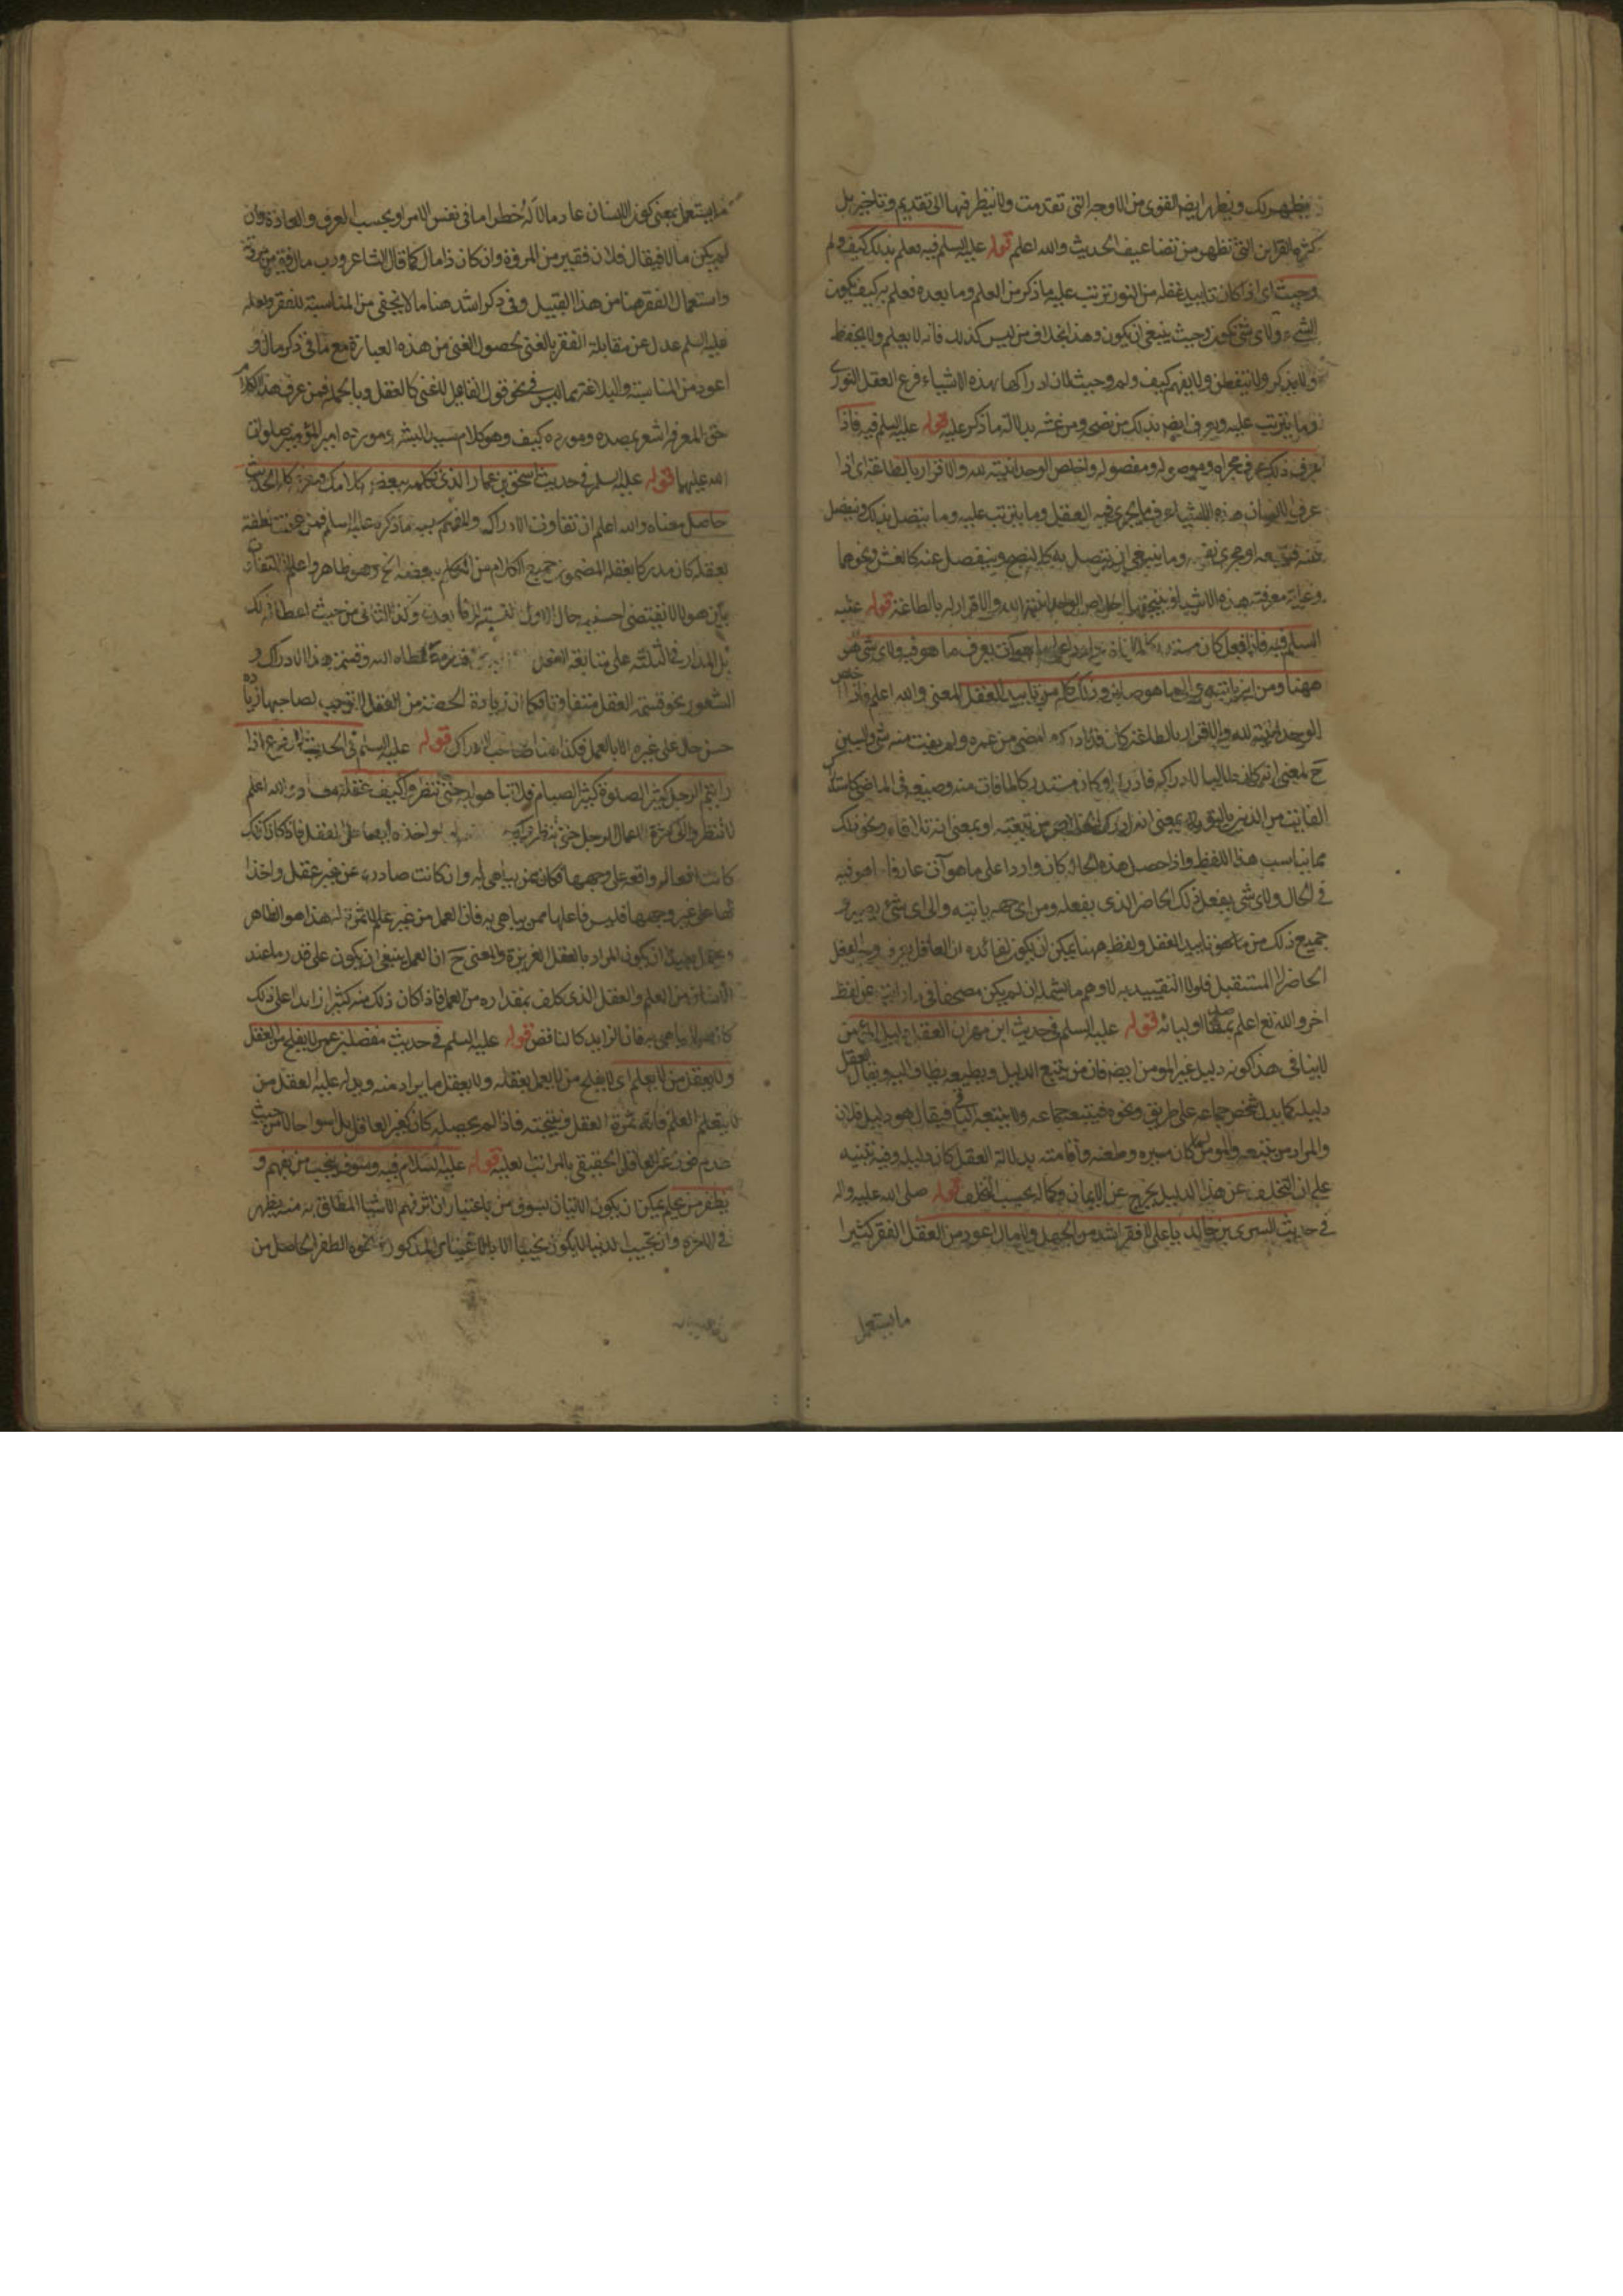 يظهر لك ويظهر ايضا لقوى من الاوجه التى تقدمت ولا ينظر فيها الى تقديم وتاخير بل
كثرة القراين التى تظهر من تضاعيف الحديث والله اعلم قوله عليه السلم فيه فعلم بذلك كيف ولم
وحيث اى اذا كان تاييد عقله من النور ترتب عليه ما ذكر من العلم وما بعده فعلم به كيف يكون
الشىء ولاى شى يكون وحيث ينبغى ان يكون وهذا بخلاف من ليس كذلك فانه لا يعلم ولا يحفظ
ولا يذكر ولا يتفطن ولا يفهم كيف ولم وحيث لان ادراكها بهذه الاشياء فرع العقل النورى
وما يترتب عليه ويعرف ايضا بذلك من نصحه ومن غشه بدلالة ما ذكر عليه قوله عليه السلم فيه فاذا
عرف ذلك عرف مجراه وموصوله ومفصوله واخلص الوحدانية لله والاقرار بالطاعة اى اذا
عرف الانسان هذه الاشياء عرف ما يجرى فيه العقل وما يترتب عليه وما يتصل بذلك وينفصل
عنه ومجرى نفسه وما ينبغى ان يتصل به كالنصح وينفصل عنه كالغش ونحوهما
وغاية معرفته هذه الاشياء ونتيجتها اخلاص الوحدانية لله والاقرار له بالطاعة قوله عليه
السلم فيه فاذا فعل كان مستدركا لما فات وواردا على ما هو آت يعرف ما هو فيه ولاى شى هو
ههنا ومن اين ياتيه والى ما هو صاير وذلك كله من تاييد العقل المعنى والله اعلم فاذا اخلص
الوحدانية لله والاقرار بالطاعة كان قد ادرك ما مضى من عمره ولم يفت منه شى وليس
ح بمعنى انه كان طالبا للادراك فادركه او كان مستدركا لما فات منه وضيعه فى الماضى كاستدراك
الفايت من الذنب بالتوبة بمعنى انه ادرك الخلاص من تبعته او بمعنى انه تلافاه ونحو ذلك
مما يناسب هذا اللفظ واذا حصل هذه الحال كان واردا على ما هو آت عارفا ما هو فيه
فى الحال ولاى شى يفعل ذلك الحاضر الذى يفعله ومن اى جهة ياتيه والى اى شى يصير و
جميع ذلك من ما هو تاييد العقل ولفظ ههنا يمكن ان يكون لفائدة ان العاقل يعرف
الحاضر المستقبل فلولا التقييد به لاوهم ما يشمله ان لم يكن مصحفا عن لفظ
اخر والله تع اعلم بمقاصد اوليائه قوله عليه السلم فى حديث ابن مهران العقل دليل المؤمن
لا ينافى هذا كونه دليل غير المومن ايضا فان من يتبع الدليل ويطيعه يضاف اليه ويقال العقل
دليله كما يدل شخص جماعة على طريق ونحوه فيتبعه جماعة ولا يتبعه الباقى فيقال هو دليل فلان
والمراد من تبعه والمومن لما كان سيره وطعنه واقامته بدلالة العقل كان دليله وفيه تنبيه
على ان التخلف عن هذا الدليل يخرج عن الايمان وكماله بحسب التخلف قوله صلى الله عليه واله
فى حديث السرى بن خالد يا على لا فقر اشد من الجهل ولا مال اعود من العقل الفقر كثيرا
ما يستعمل
ما يستعمل بمعنى كون الانسان عادما لما له خطر اما فى نفس الامر او بحسب العرف والعادة وان
لم يكن مالا فيقال فلان فقير من المروة وان كان ذا مال كما قال الشاعر ورب مال فقير من مروته
واستعمال الفقر هنا من هذا القبيل وفى ذكر اشد هنا ما لا يخفى من المناسبة للفقر ولعله
عليه السلم عدل عن مقابلة الفقر بالغنى لحصول الغنى من هذه العبارة مع ما فى ذكر مال و
اعود من المناسبة والبلاغة مما ليس فى نحو قول القايل لا غنى كالعقل وبالجملة فمن عرف هذا الكلام
حق المعرفة اشعر بمصدره ومورده كيف وهو كلام سيد البشر ومورده امير المؤمنين صلوات
الله عليهما قوله عليه السلم فى حديث اسحق بن عمار الذى تكلمه ببعض كلامك فيعرف كله الحديث
حاصل معناه والله اعلم ان تفاوت الادراك والفهم بسبب ما ذكره عليه السلم فمن عجنت نطفته
بعقله كان مدركا بعقله المضمون جميع الكلام من التكلم ببعضه الخ وهو ظاهر واعلم ان التفاوت
بين هولاء لا يقتضى احسنية حال الاول بالنسبة الى ما بعده وكذا الثانى من حيث اعطائه ذلك
بل المدار فى الثلثة على متابعة العقل اعطاه الله وقسمة هذا الادراك و
الشعور نحو قسمة العقل متفاوتا فكما ان زيادة الحصة من العقل لا توجب لصاحبها زيادة
حسن حال على غيره الا بالعمل فكذا هنا صاحب الادراك قوله عليه السلم فى الحديث الرفع اذا
رايتم الرجل كثير الصلوة كثير الصيام فلا تباهوا به حتى تنظروا كيف عقله مفاده والله اعلم
لا تنظروا الى كثرة اعمال الرجل حتى ينظر فى كيفية لمواخذه ايضا على العقل فاذا كان كذلك
كانت افعاله واقعة على وجهها فكان ممن يباهى به وان كانت صادرة عن غير عقل واخذ
لها على غير وجهها فليس فاعلها ممن يباهى به فان العمل من غير علم لا ثمرة له هذا هو الظاهر
ويحتمل بعيدا ان يكون المراد بالعقل الغريزة والمعنى ح ان العمل ينبغى ان يكون على قدر ما عند
الانسان من العلم والعقل الذى كلف بمقداره من العمل فاذا كان ذلك منه كثيرا زايدا على ذلك
كان ممن لا يباهى به فان الزايد كالناقص قوله عليه السلم فى حديث مفضل بن عمر لا يفلح من لا يعقل
ولا يعقل من لا يعلم اى لا يفلح من لا يعمل بعقله ولا يعقل ما يراد منه ويدله عليه العقل من
لا يتعلم العلم فانه ثمرة العقل ونتيجته فاذا لم يحصله كان كغير العاقل بل اسوا حالا من حيث
عدم العاقل الحقيقى بالمراتب العلية قوله عليه السلام فيه وسوف ينجب من يفهم و
يظفر من يحلم يمكن ان يكون الاتيان بسوف من باعتبار ان اثر فهم الاشيا المطلق به منه يظهر
فى الاخرة وان نجيب الدنيا لا يكون نجيبا الا بالاعتبار المذكور ونحوه الظفر الحاصل من